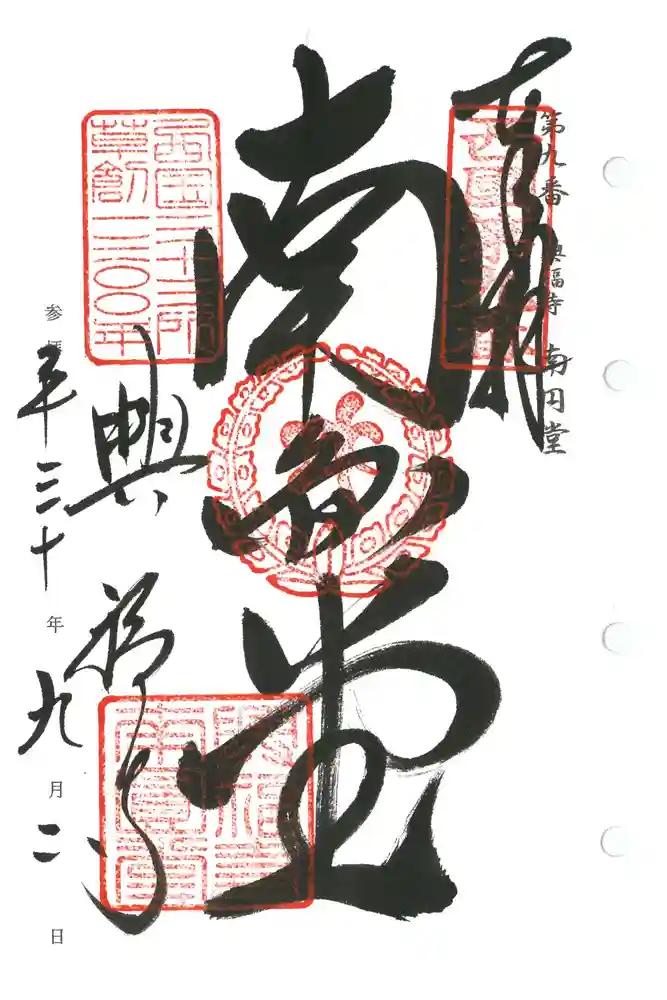 第九番 興福寺 南円堂
奉拝
西国三十三所
草創一三〇〇年
南円堂
興福寺
興福寺
南円堂
平三十年九月二日